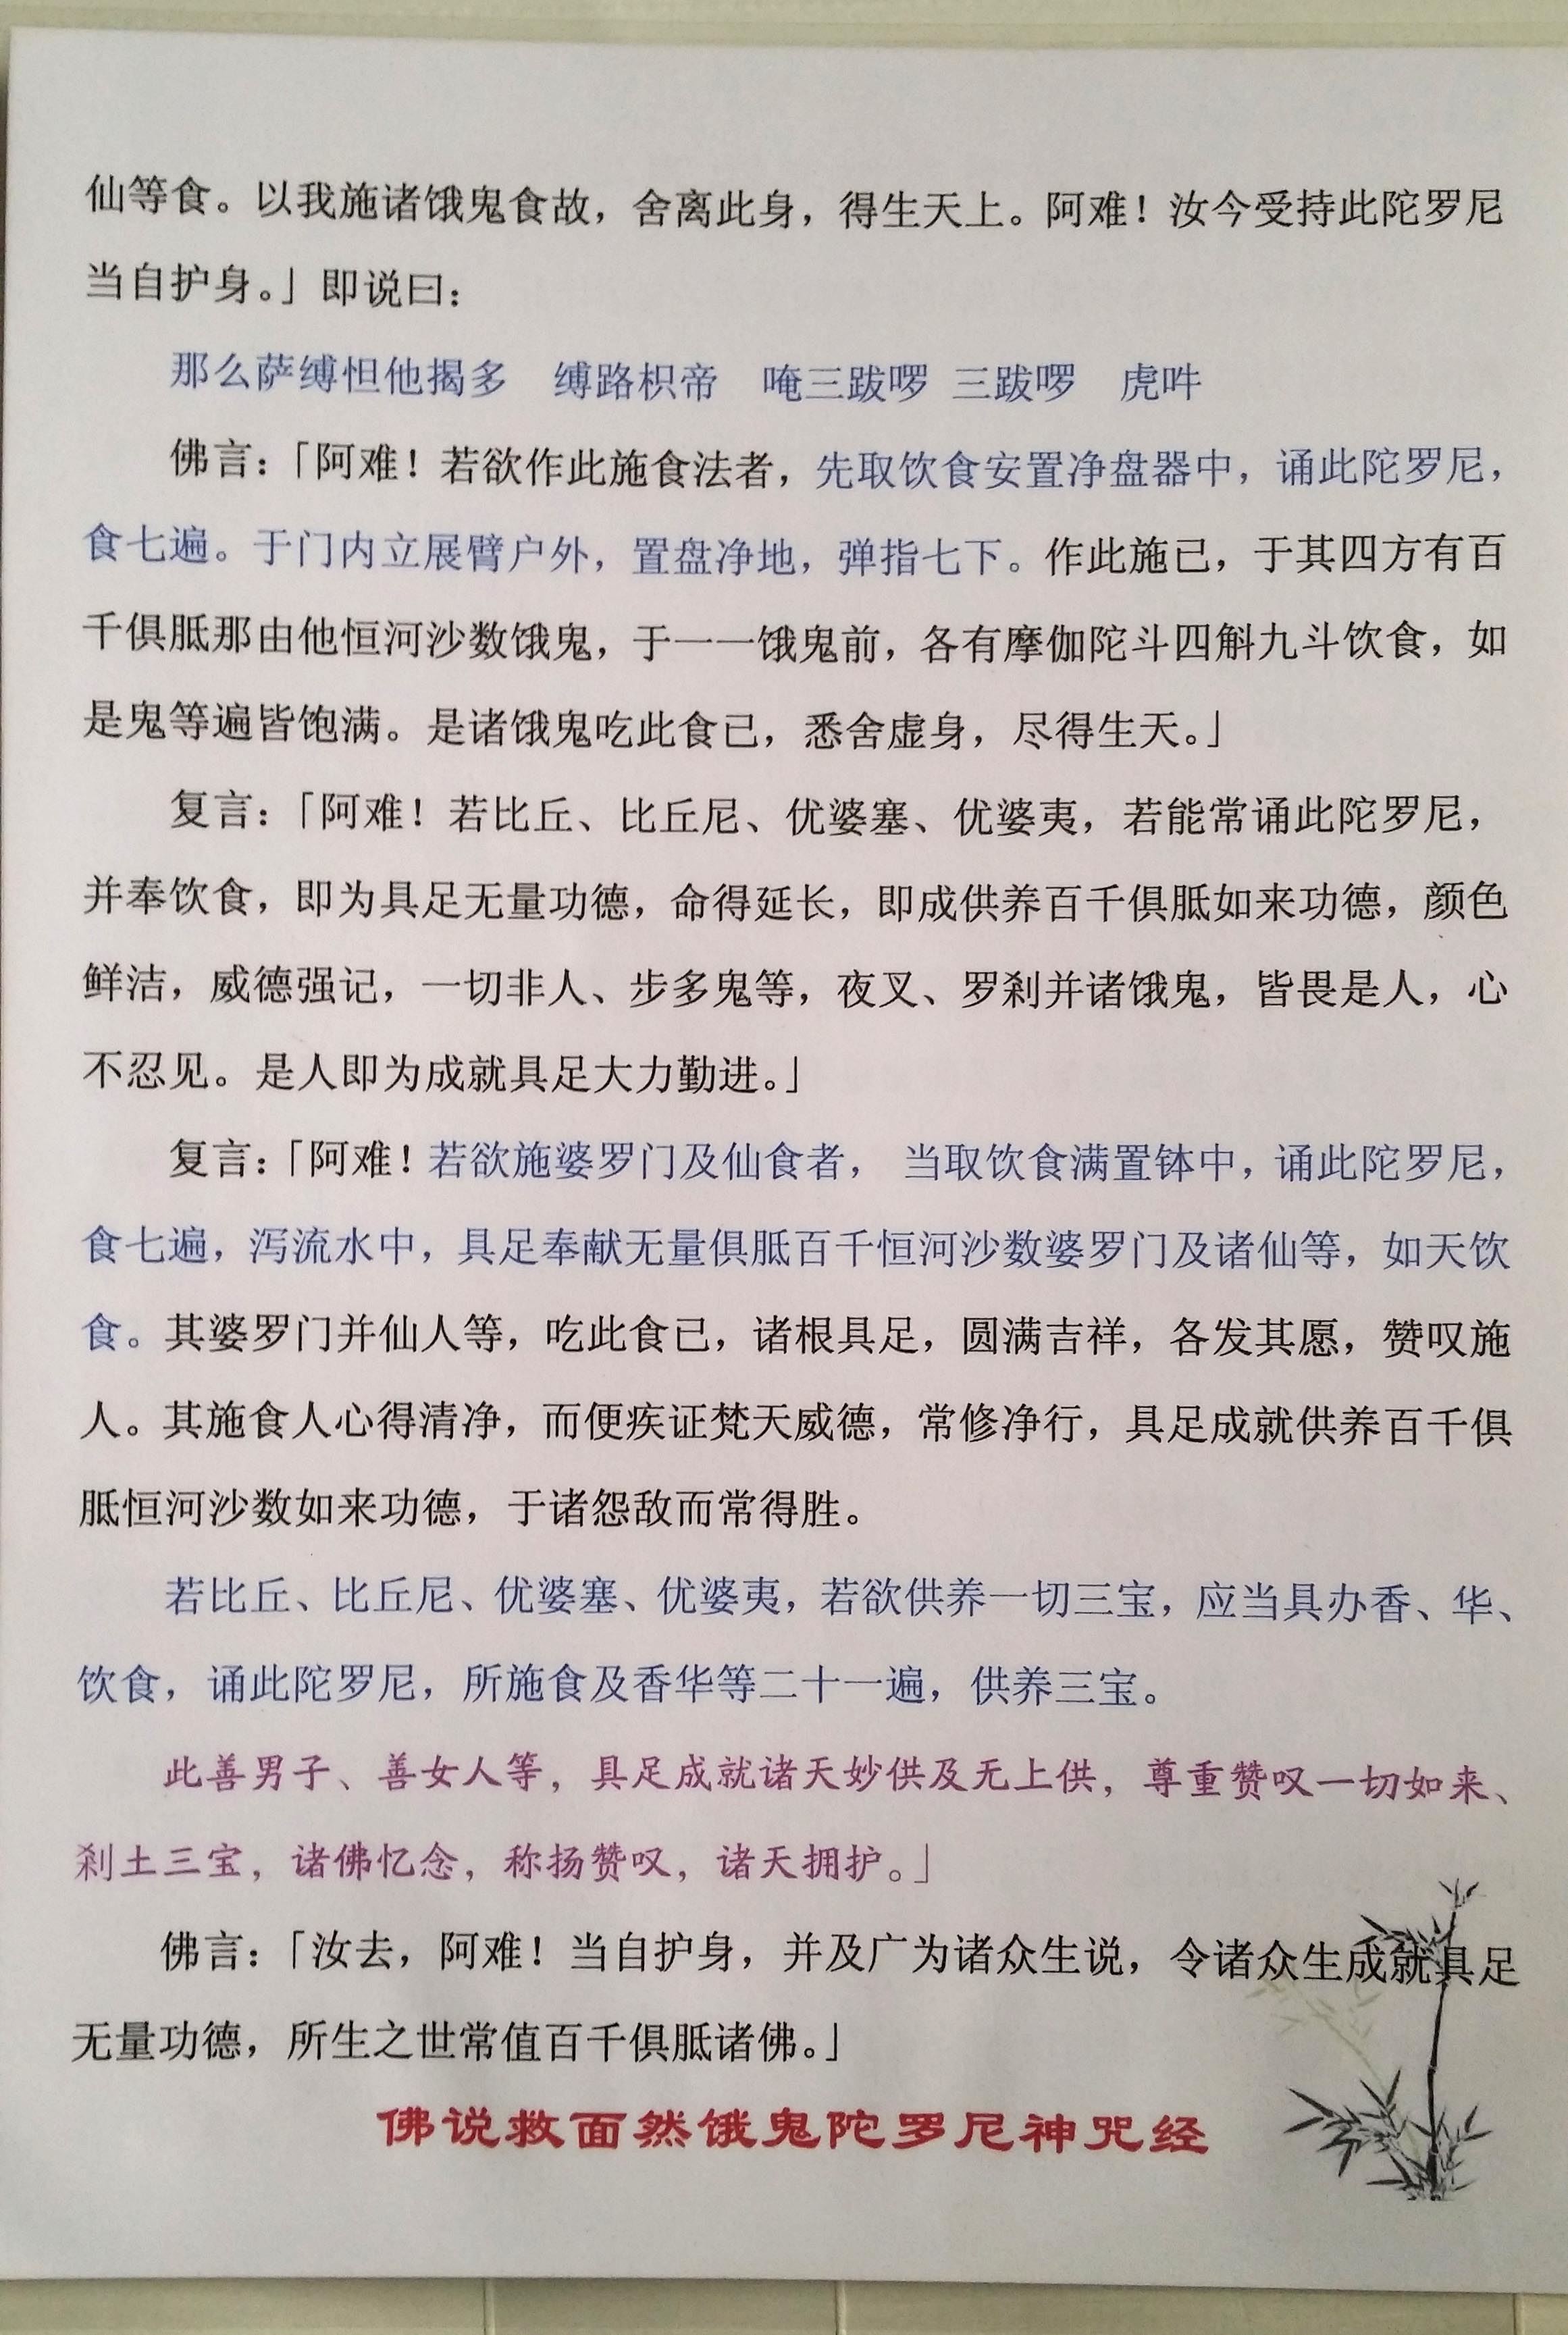 仙等食。以我施诸饿鬼食故，舍离此身，得生天上。阿难！汝今受持此陀罗尼
当自护身。」即说曰：
那么萨缚怛他揭多　缚路枳帝　唵三跋啰　三跋啰　虎吽
佛言：「阿难！若欲作此施食法者，先取饮食安置净盘器中，诵此陀罗尼，
食七遍。于门内立展臂户外，置盘净地，弹指七下。作此施已，于其四方有百
千俱胝那由他恒河沙数饿鬼，于一一饿鬼前，各有摩伽陀斗四斛九斗饮食，如
是鬼等遍皆饱满。是诸饿鬼吃此食已，悉舍虚身，尽得生天。」
复言：「阿难！若比丘、比丘尼、优婆塞、优婆夷，若能常诵此陀罗尼，
并奉饮食，即为具足无量功德，命得延长，即成供养百千俱胝如来功德，颜色
鲜洁，威德强记，一切非人、步多鬼等，夜叉、罗刹并诸饿鬼，皆畏是人，心
不忍见。是人即为成就具足大力勤进。」
复言：「阿难！若欲施婆罗门及仙食者， 当取饮食满置钵中，诵此陀罗尼，
食七遍，泻流水中，具足奉献无量俱胝百千恒河沙数婆罗门及诸仙等，如天饮
食。其婆罗门并仙人等，吃此食已，诸根具足，圆满吉祥，各发其愿，赞叹施
人。其施食人心得清净，而便疾证梵天威德，常修净行，具足成就供养百千俱
胝恒河沙数如来功德，于诸怨敌而常得胜。
若比丘、比丘尼、优婆塞、优婆夷，若欲供养一切三宝，应当具办香、华、
饮食，诵此陀罗尼，所施食及香华等二十一遍，供养三宝。
此善男子、善女人等，具足成就诸天妙供及无上供，尊重赞叹一切如来、
刹土三宝，诸佛忆念，称扬赞叹，诸天拥护。」
佛言：「汝去，阿难！当自护身，并及广为诸众生说，令诸众生成就具足
无量功德，所生之世常值百千俱胝诸佛。」
佛说救面然饿鬼陀罗尼神咒经